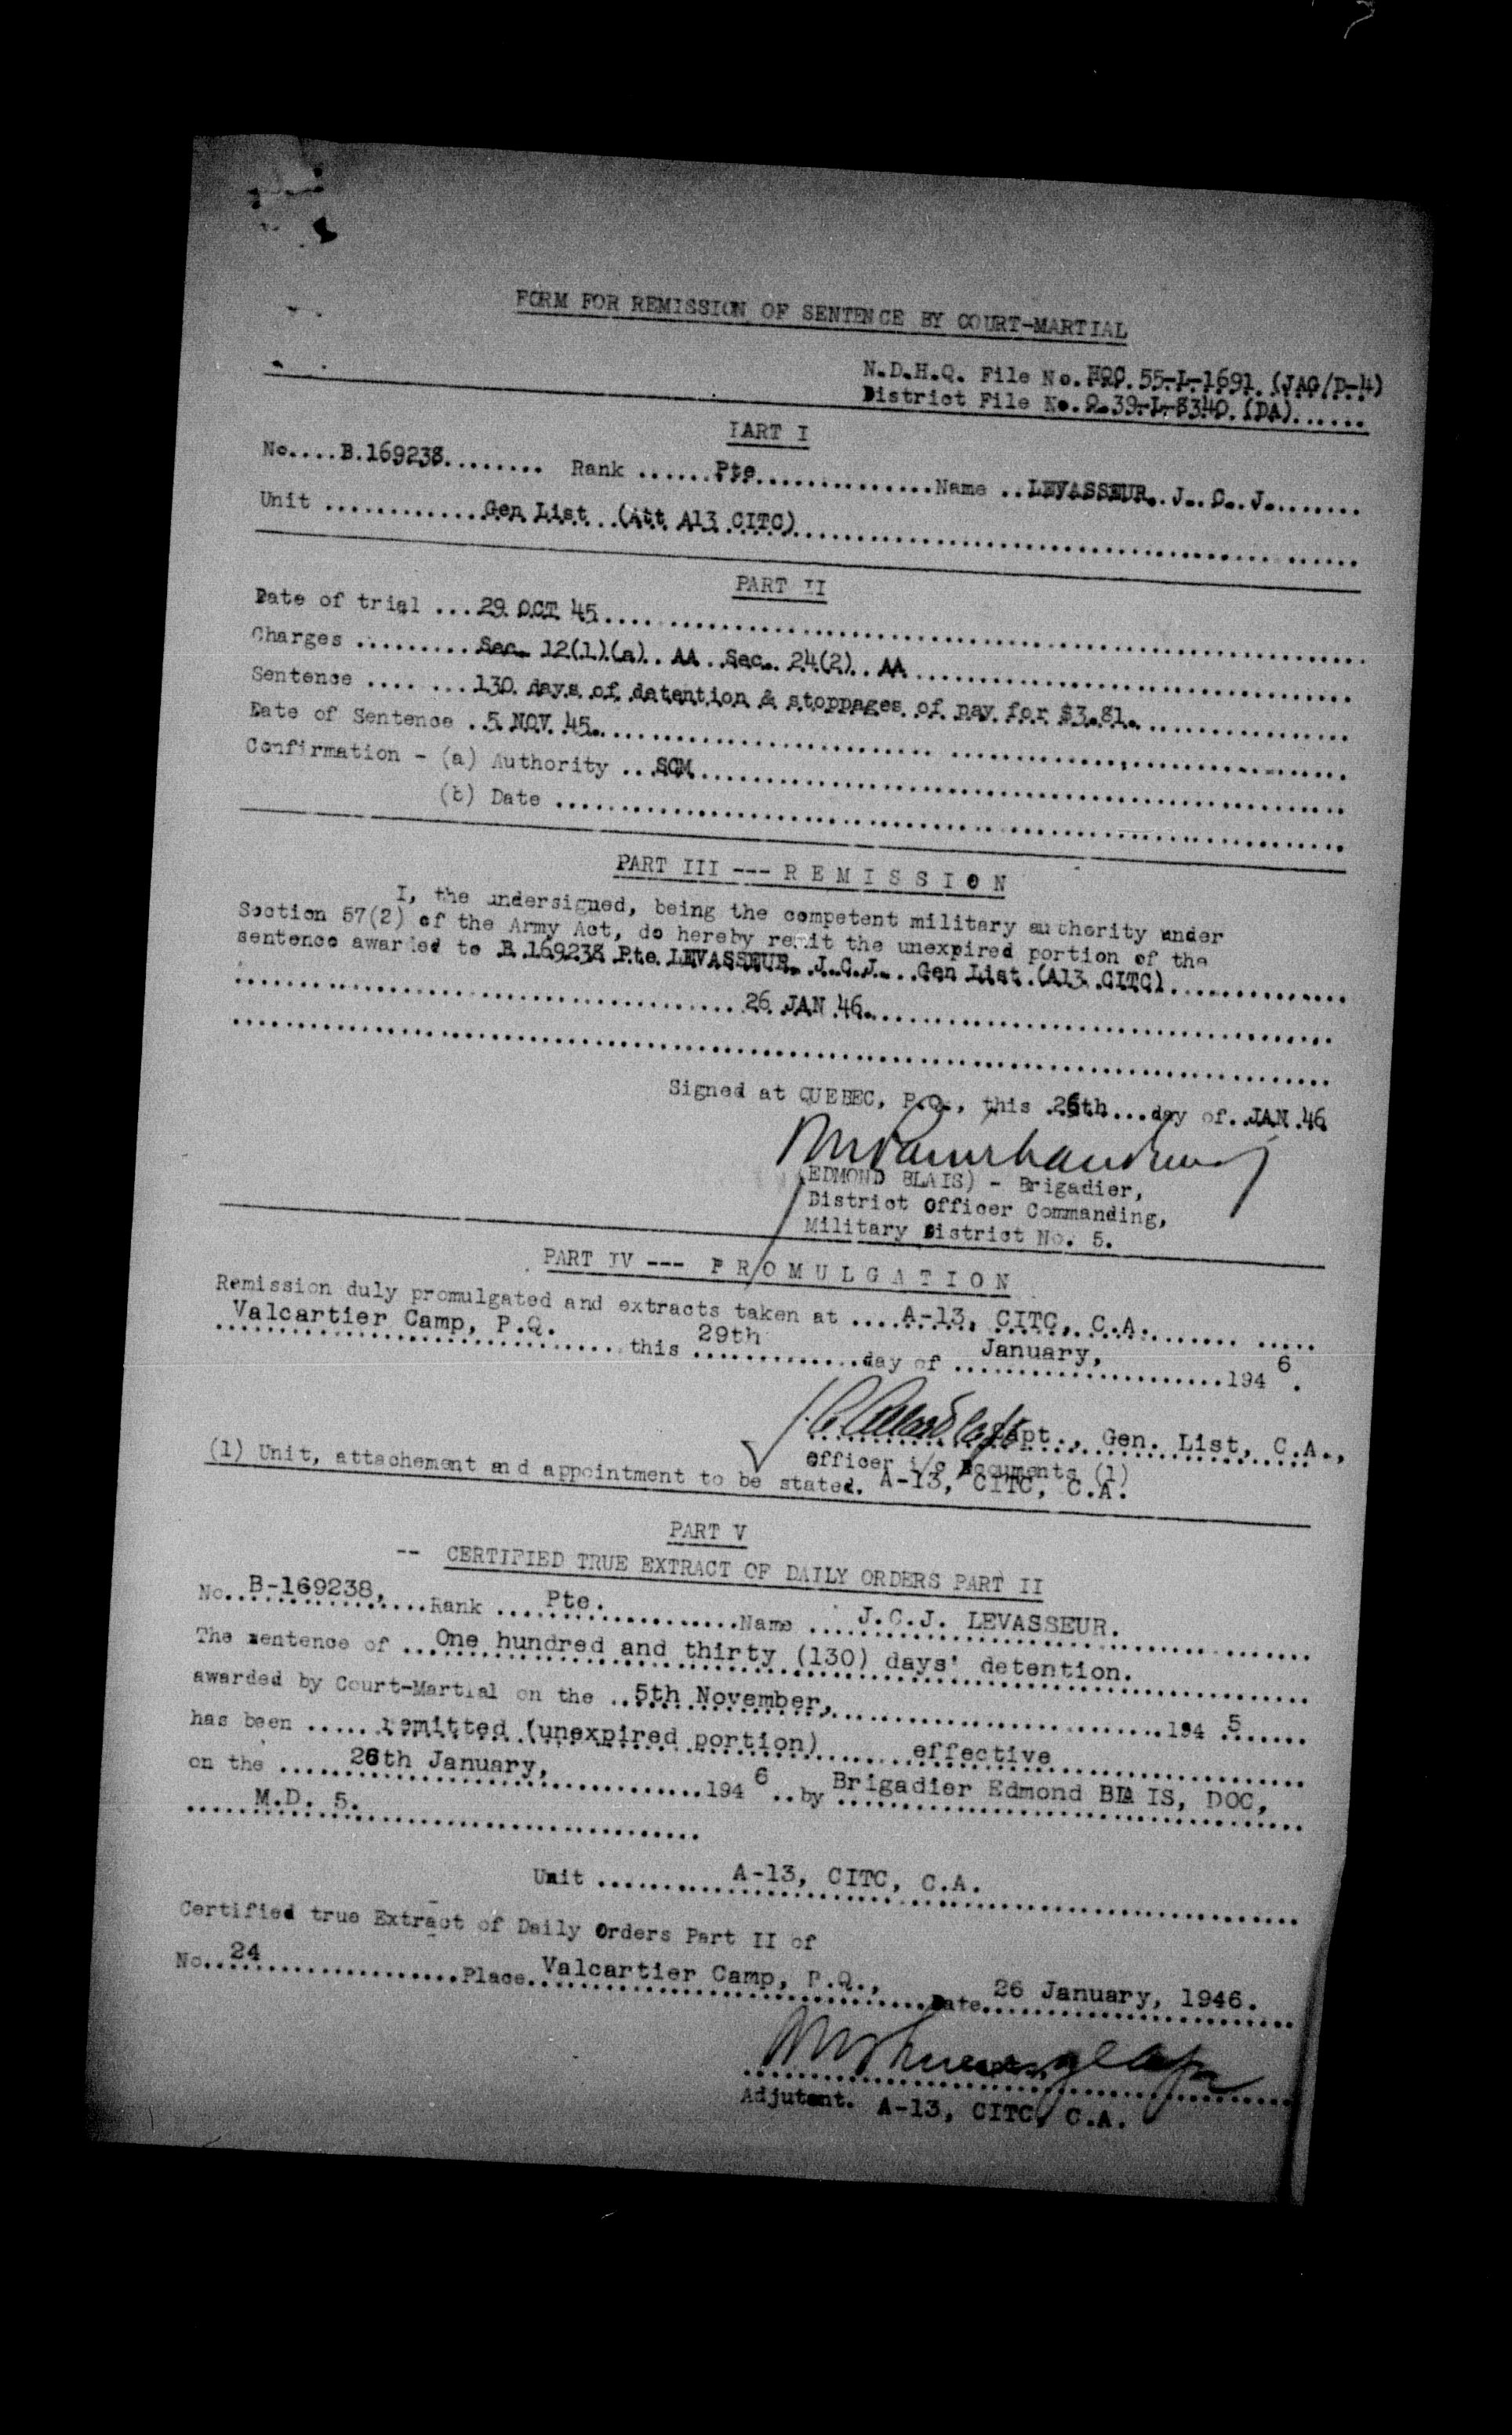 FORM FOR REMISSION OF SENTENCE BY COURT-MARTIAL
N.D.H.Q. File No. HQC 55-L-1691 (JAG/D-4)
District File No. Q.39-L-8340 (DA)......
PART I
No....B.169238......... Rank ......Pte...............Name ..LEVASSEUR. J. C. J.......
Unit ............Gen List (Att A13 CITC)......
PART II
Date of trial ...29 OCT 45......
Charges .........Sec. 12(1)(a) AA Sec. 24(2) AA......
Sentence .... ...130 days of detention & stoppages of pay for $3.81.......
Date of Sentence ..5 NOV 45.......
Confirmation - (a) Authority ...SCM......
(b) Date ......
PART III --- R E M I S S I O N
I, the undersigned, being the competent military authority under
Section 57(2) of the Army Act, do hereby remit the unexpired portion of the
sentence awarded to B 169238 Pte LEVASSEUR, J.C.J. Gen List (A13 CITC)......
......26 JAN 46.......
Signed at QUEBEC, P.Q., this 26th...day of..JAN 46
(EDMOND BLAIS) - Brigadier,
District Officer Commanding,
Military District No. 5.
PART IV --- P R O M U L G A T I O N
Remission duly promulgated and extracts taken at ....A-13, CITC, C.A.......
Valcartier Camp, P.Q. this 29th day of January, 194 6.
Capt., Gen. List, C.A.,
officer i/c Documents (1)
(1) Unit, attachement and appointment to be stated. A-13, CITC, C.A.
PART V
-- CERTIFIED TRUE EXTRACT OF DAILY ORDERS PART II
No. B-169238, Rank ....Pte. Name ....J.C.J. LEVASSEUR.
The sentence of ...One hundred and thirty (130) days' detention.
awarded by Court-Martial on the ..5th November, 194 5
has been .....remitted (unexpired portion) effective
on the ....26th January, 194 6 ..by Brigadier Edmond BLA IS, DOC,
M.D. 5.
Unit ......A-13, CITC, C.A.
Certified true Extract of Daily Orders Part II of
No. 24 Place. Valcartier Camp, P.Q., Date 26 January, 1946.
Adjutant. A-13, CITC, C.A.